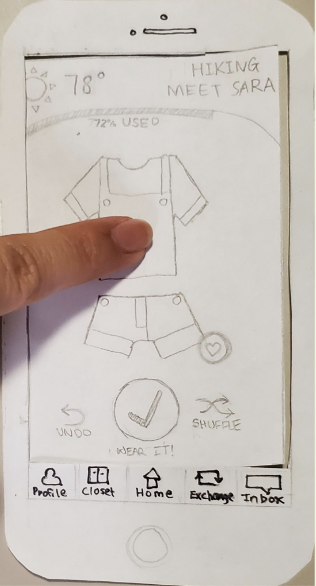 78°
HIKING
MEET SARA
72% USED
UNDO
SHUFFLE
WEAR IT!
Profile
Closet
Home
Exchange
Inbox